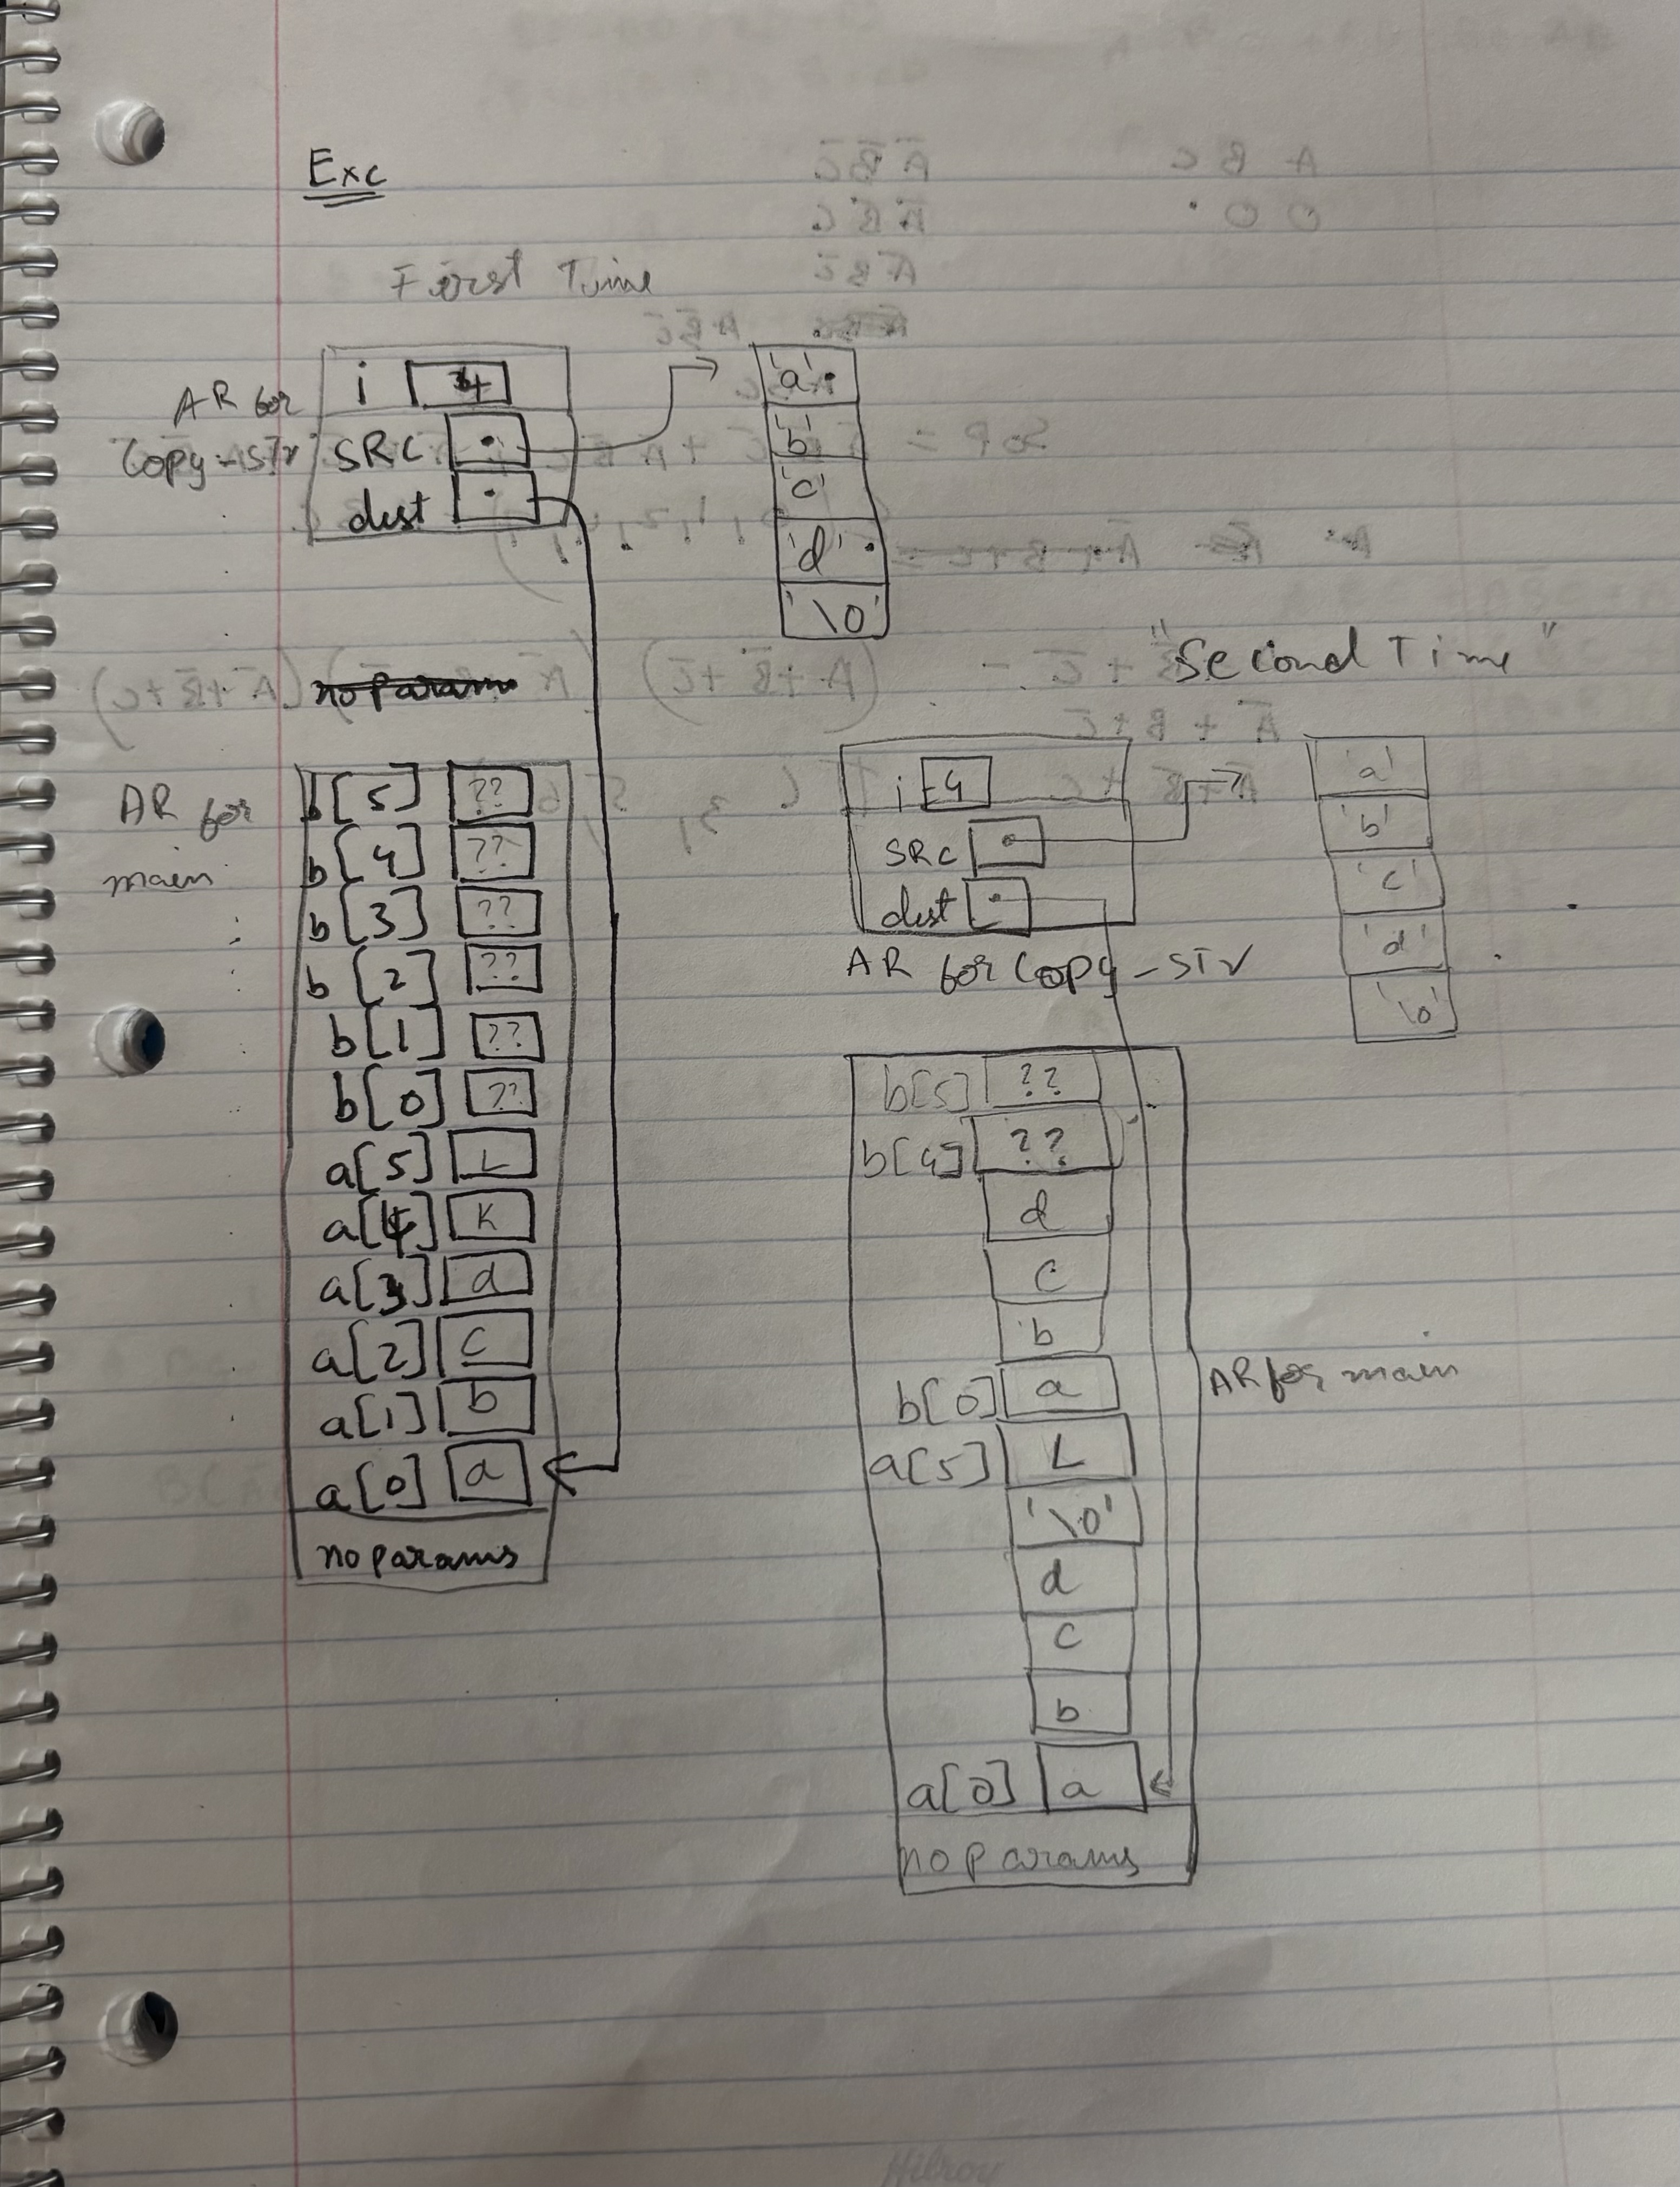 Exc
First Time
AR for
Copy-Str
i 4
SRC
dest
'a'
'b'
'c'
'd'
'\0'
AR for
main
b[5] ??
b[4] ??
b[3] ??
b[2] ??
b[1] ??
b[0] ??
a[5] L
a[4] K
a[3] d
a[2] c
a[1] b
a[0] a
no params
"Second Time"
i 4
SRC
dest
AR for Copy-Str
'a'
'b'
'c'
'd'
'\0'
b[5] ??
b[4] ??
d
c
b
b[0] a
a[5] L
'\0'
d
c
b
a[0] a
no params
AR for main
Hilroy